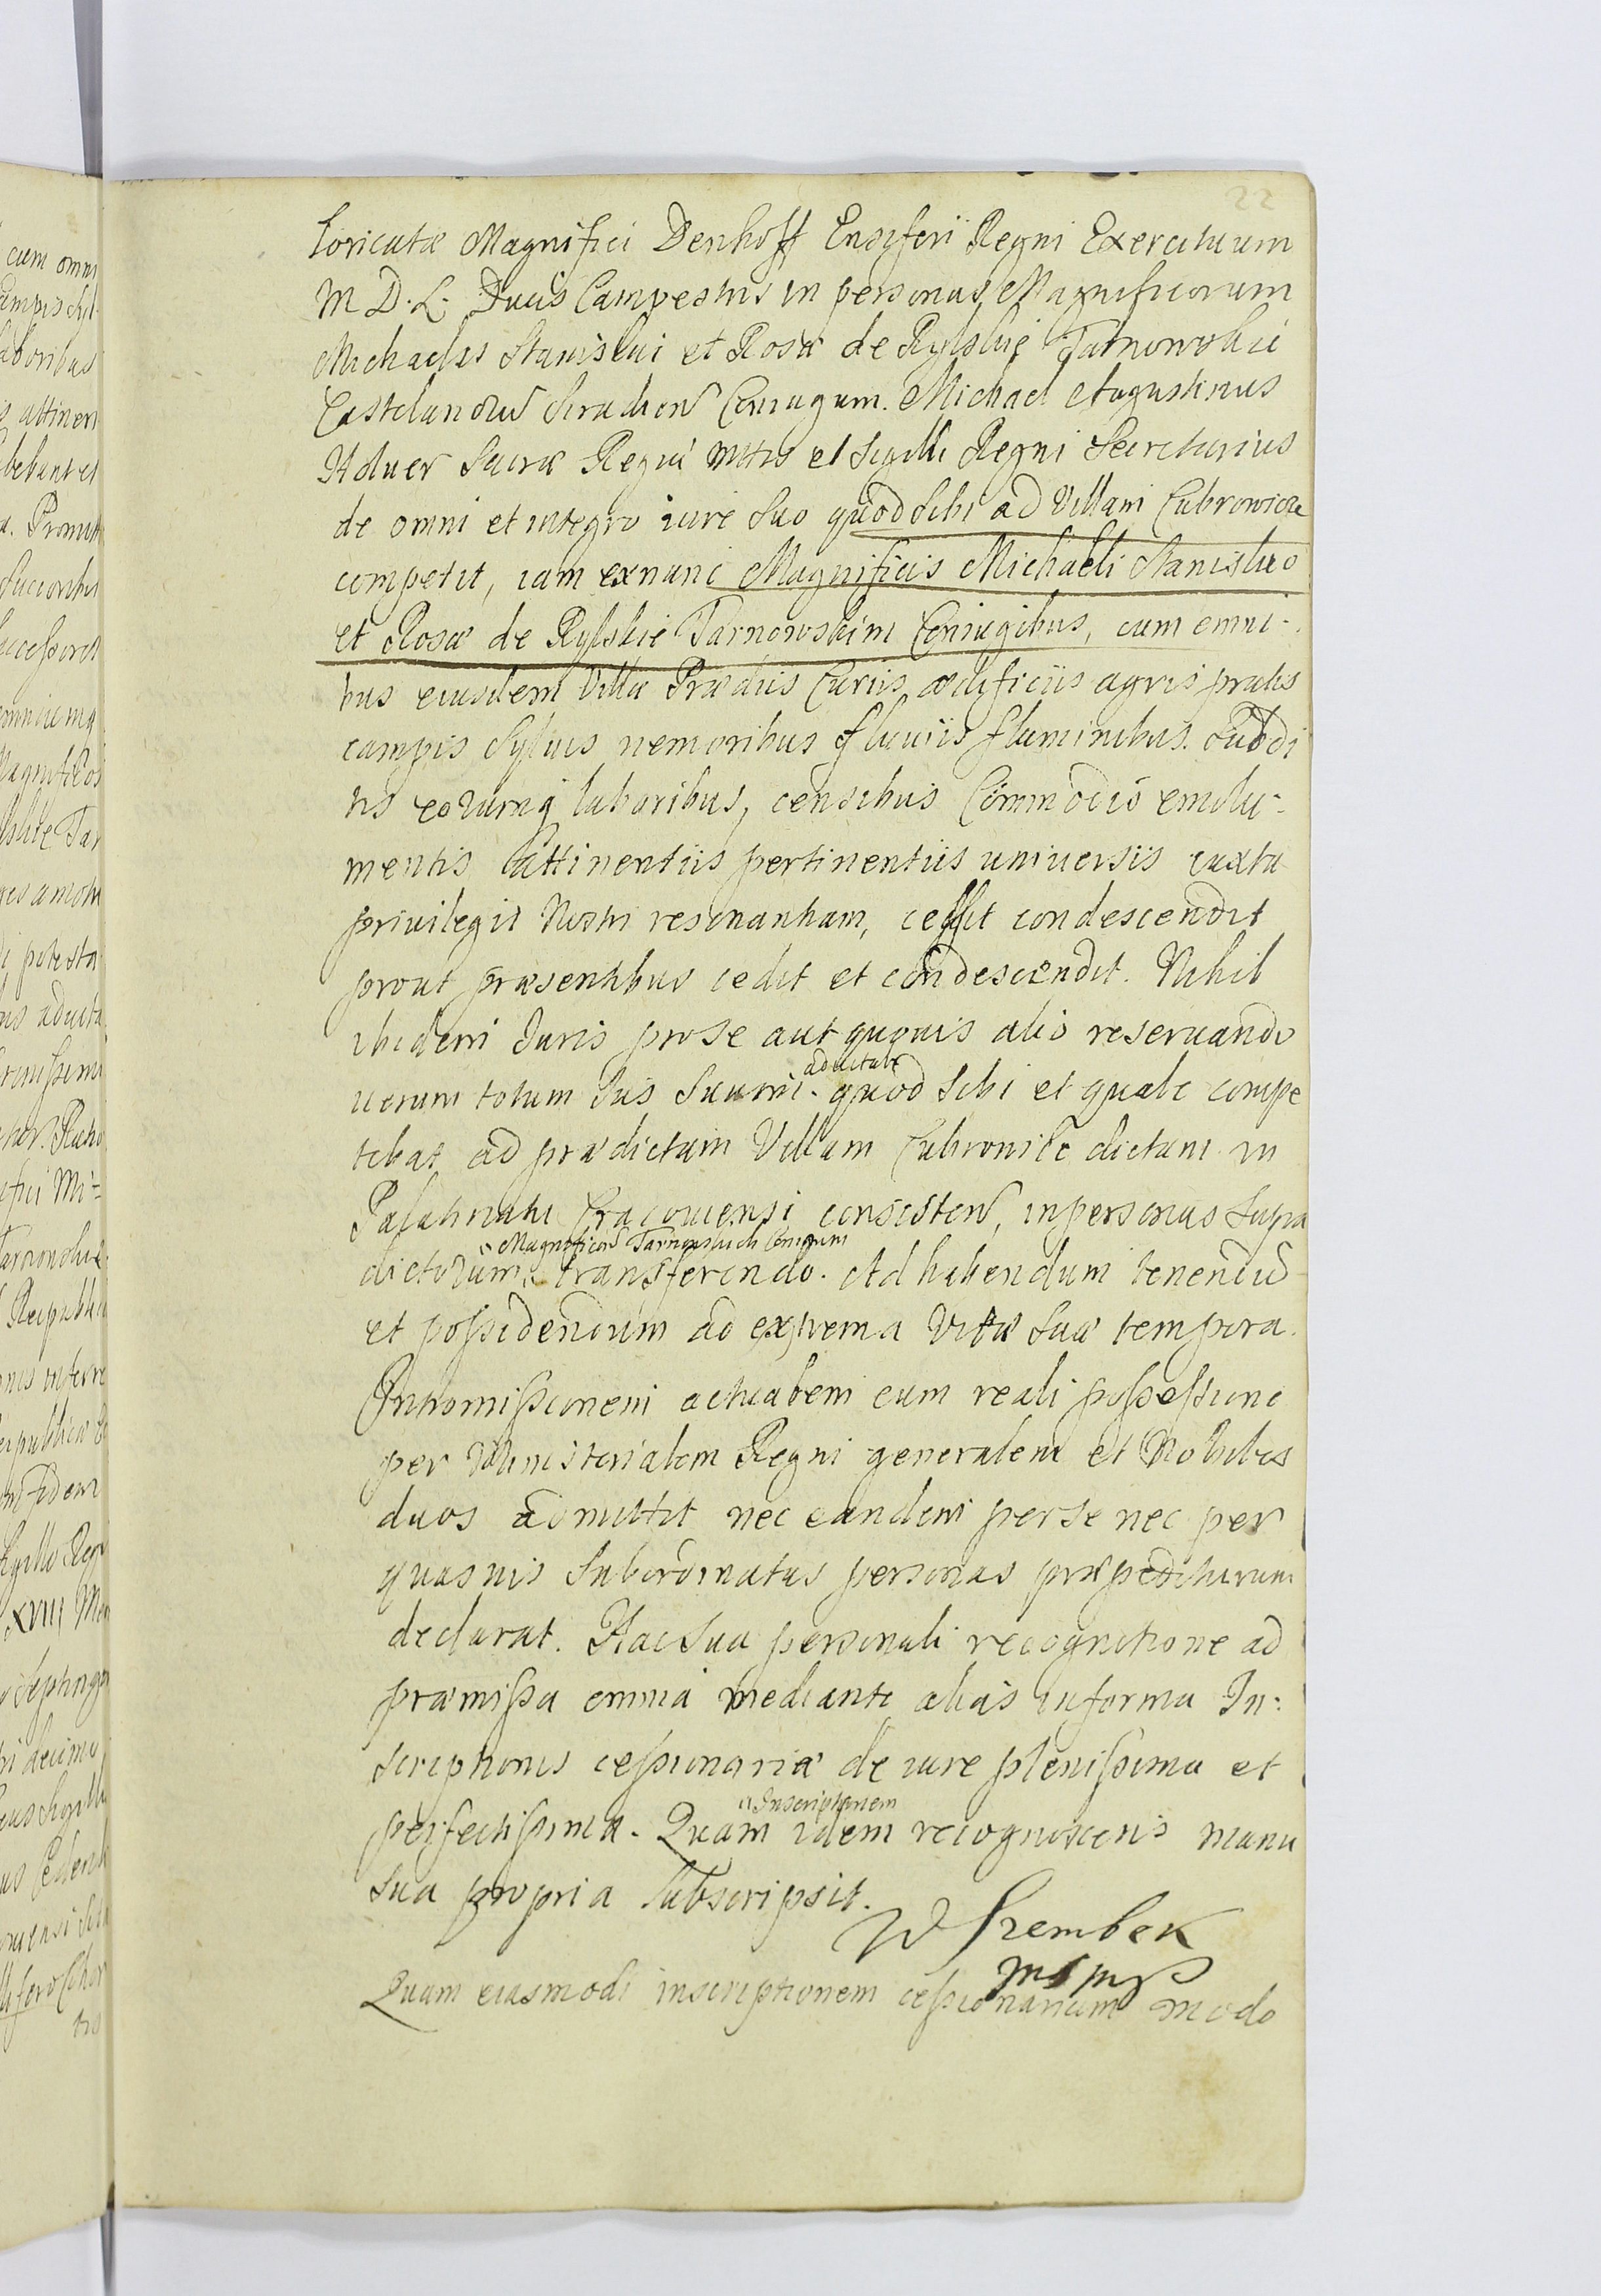 22
loricatæ Magnifici Denhoff Ensiferi Regni Exercituum
M D. L. Ducis Campestris in personas Magnificorum
Michaelis Stanislai et Rosæ de Rylskie Tarnowskie
Castelanorũ Siradien Coniugum. Michael Augustinus
Aduer Sacræ Regiæ Mttis et Sigilli Regni Secretarius
de omni et integro iure suo quod sibi ad Villam Cubrowice
competit, iam exnunc Magnificis Michaeli Stanislao
et Rosæ de Rylskie Tarnowskim Coniugibus, cum omni-
bus eiusdem Villæ Prædiis Curiis ædificiis agris pratis
campis Syluis nemoribus fluuiis fluminibus. Subdi
tis eorumq laboribus, censibus Commodis emolu-
mentis attinentiis pertinentiis universis iuxta
privilegii Nostri resonantiam, cessit condescendit
prout præsentibus cedit et condescendit. Nihil
ibidem Juris prose aut quouis alio reservando
aduitale
verum totum Ius Suum. quod sibi et quale compe
tebat ad prædictam Villam Cubronice dictam in
Palatinatu Cracouiensi consisten, inpersonas Supra
Magnificorũ Tarnowskich Coniugum
dictorum, transferendo. Ad habendum tenendũ
et possidendum ad extrema Vitæ suæ tempora.
Intromissionem actualem cum reali possessione
per Ministerialem Regni generalem et Nobiles
duos admittit nec eandem perse nec per
quasuis subordinatas personas præpediturum
declarat. Hac sua personali recognitione ad
præmissa omnia mediante alias informa In:
scriptionis cessionariæ de iure plenissima et
Inscriptionem
perfectissima. Quam idem recognoscens manu
sua propria subscripsit.
W Szembek
mspr
Quam eiasmodi inscriptionem cessionariam modo